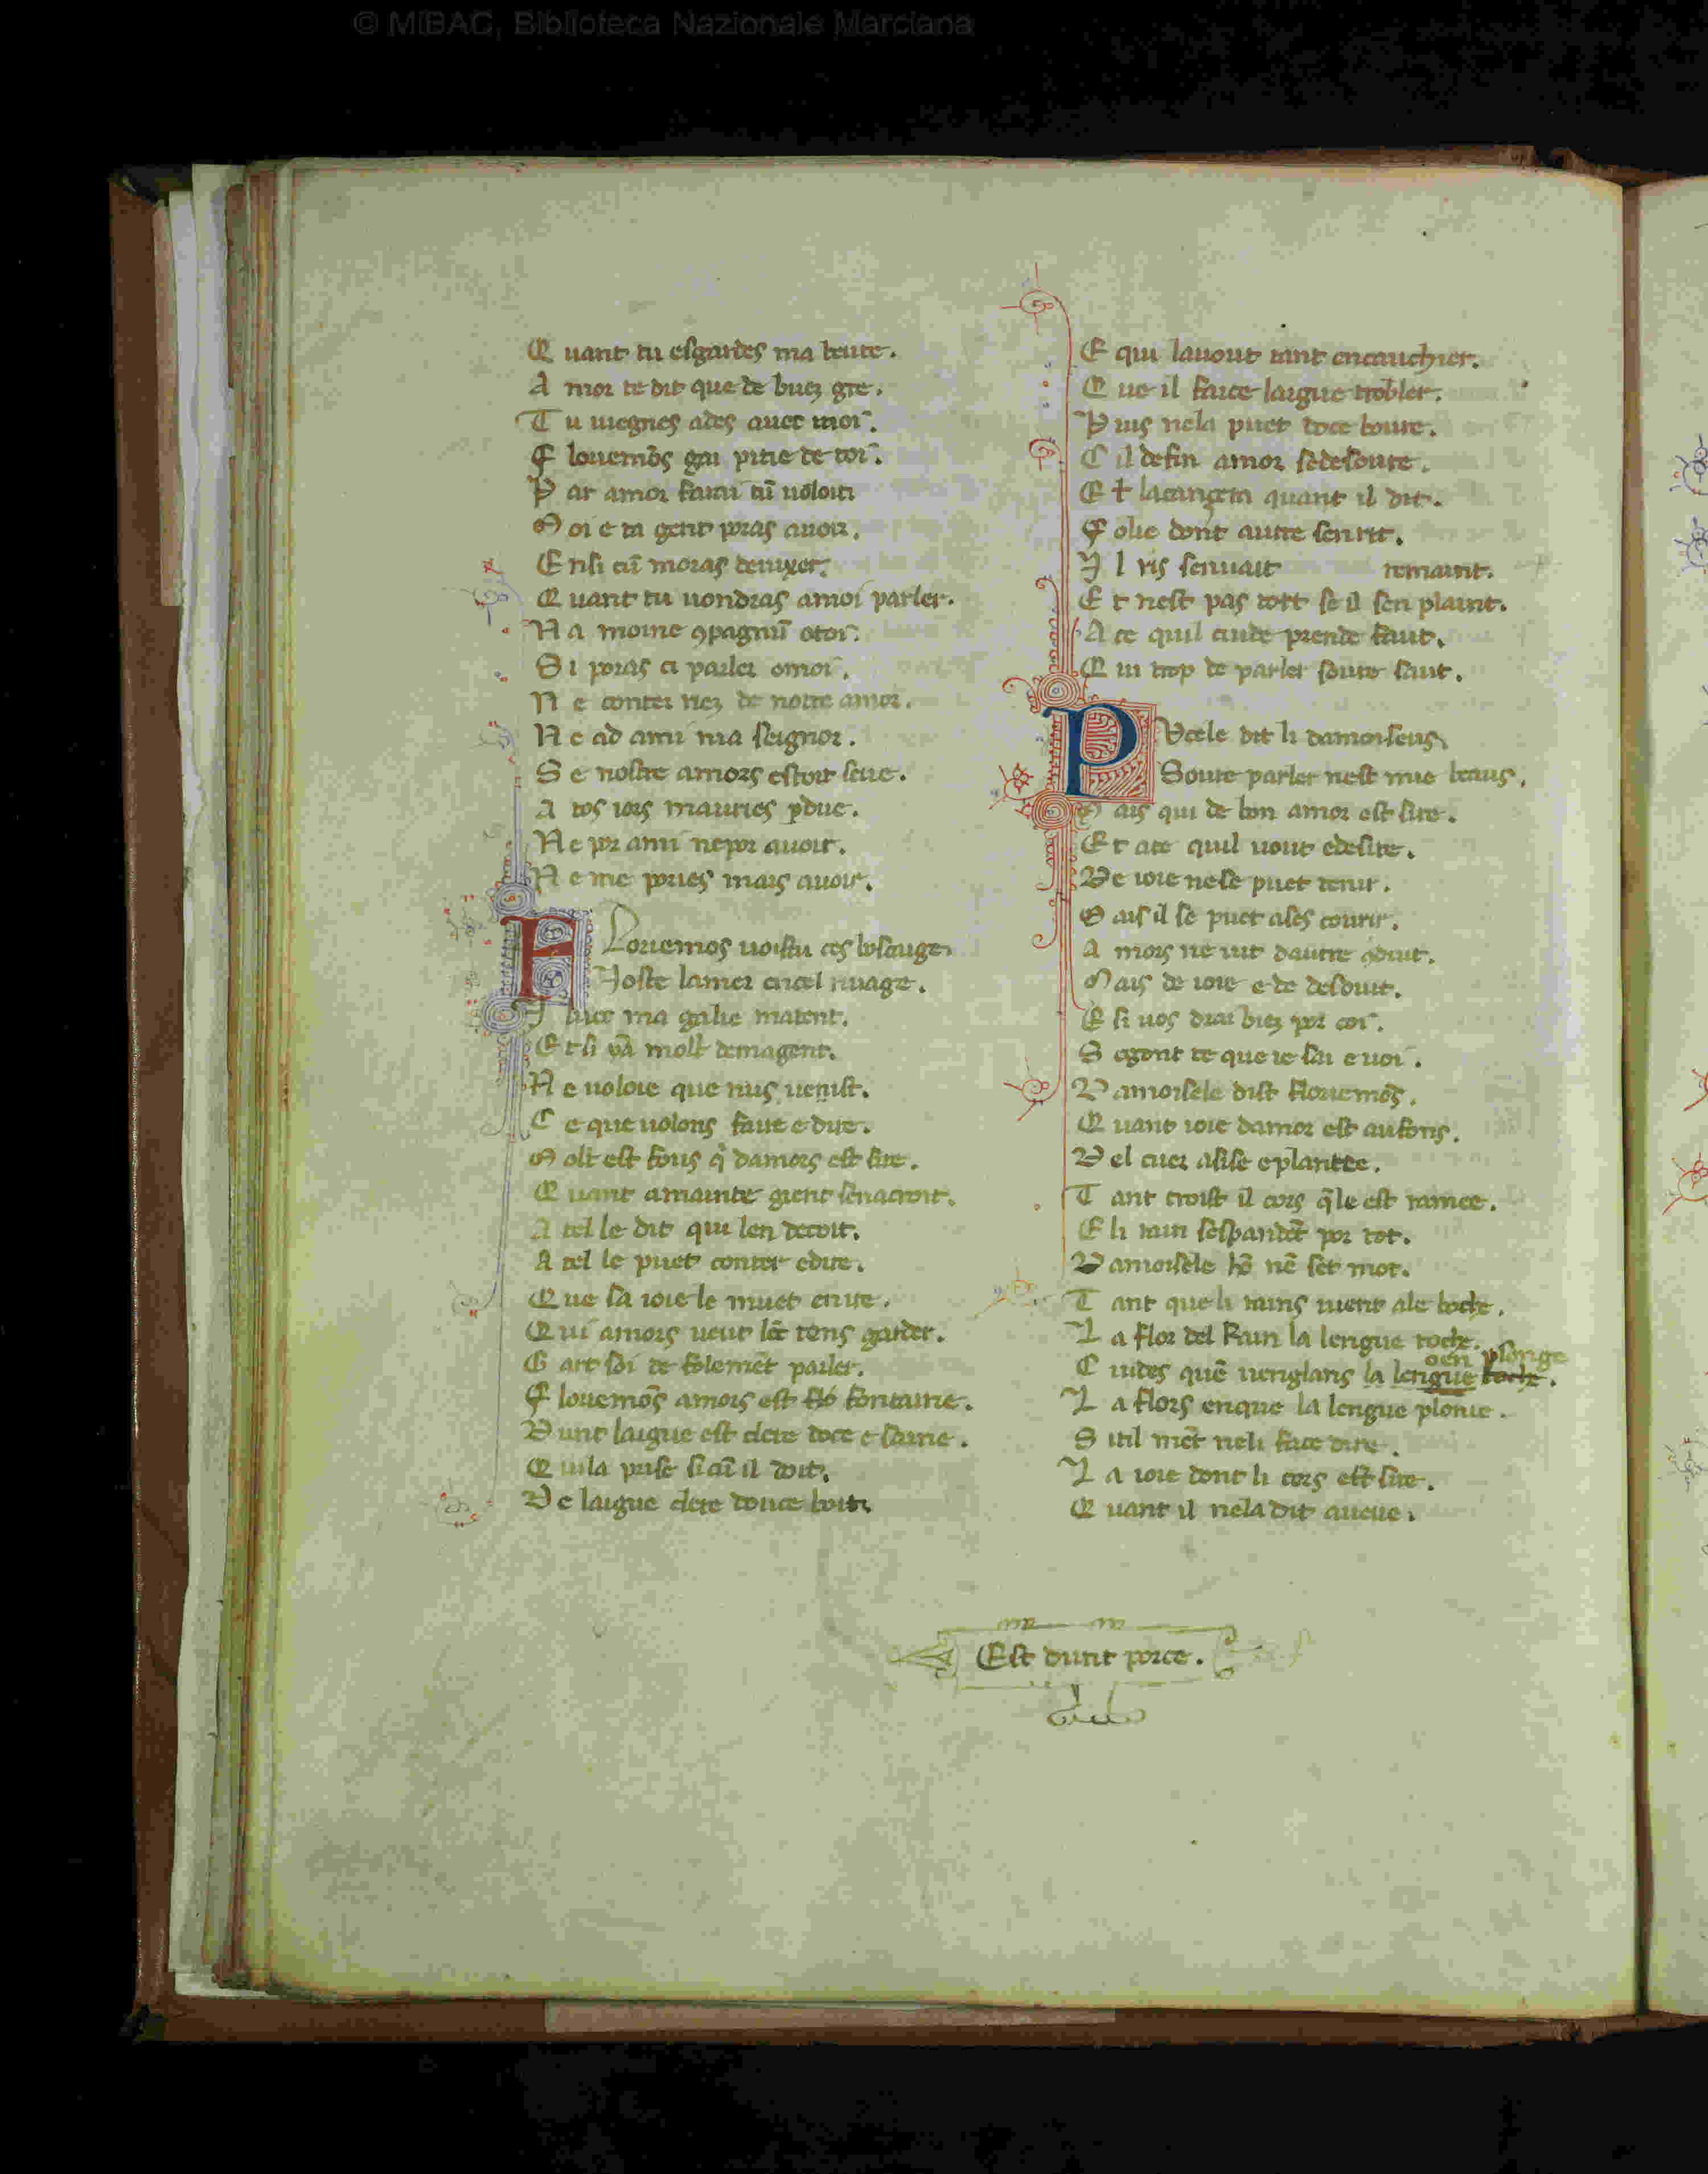 © MiBAC, Biblioteca Nazionale Marciana
Q uant tu esgardes ma beute.
A mor te dit que de buez gre.
T u uiegnes ades auec moi.
F louemõs gai pitie de toi.
P ar amor
M oi e ta gent poras auoir.
E nsi cũ moras deuixer.
Q uant tu uondras amoi parler.
N a moine ꝯpagniũ otoi.
S i poras ci parler omoi.
N e conter riez de notre amor.
N e ad ami ma seignor.
S e nostre amors estoit seue.
A tos iors mauries ꝑdue.
N e por ami nepor auoir.
N e me pories mais auoir.
F Louemos uoistu ces
Joste lamer encel riuage.
I luec ma galie matent.
E t si molt demagent.
N e uoloie que nus uenist.
C e que uolons faire e dire.
M olt est fous q̾ damors est sire.
Q uant amainte gient senacroit.
A tel le dit qui len decoit.
A tel le puet conter edire.
Q ue sa ioie le muet enire.
Q ui amors ueut lõc tens garder.
G art soi de folemẽt parler.
F louemõs amors est fontaine.
D unt laigue est clere doce e saine.
Q uila prise sicũ il doit.
D e laigue clere douce boit.
E qui lauout tant encauchier.
Q ue il faice laigue trobler.
P uis nela puet doce boiure.
C il defin amor sedesoiure.
E t quant il dit.
F olie dont autre senrit.
I l ris senuait remaint.
E t nest pas tort se il sen plaint.
A ce quil cuide prendre faut.
Q ui trop de parler soure saut.
P Vcele dit li damoiseus
Soure parler nest mie beaus.
M ais qui de bon amor est sire.
E t ace quil uout edesire.
D e ioie nese puet tenir.
M ais il se puet ases courir.
A mors ne uit dautre ꝯduit.
M ais de ioie e de desduit.
E si uos dirai biez por coi.
S egont ce que ie sai e uoi.
D amoisele dist flouemõs.
Q uant ioie damor est aufons.
D el cuer asise eplantee.
T ant croist il cors q̃le est ramee.
E li rain sespandẽt por tot.
D amoisele hõ nẽ set mot.
T ant que li rains uient ale boche.
L a flor del Rain la lengue toche.
oen plonge
C uides quẽ uenglans la lengue toche.
L a flors enque la lengue plonie.
S util mẽt neli face dire.
L a ioie dont li cors est sire.
Q uant il nela dit aueue.
Est dunt porce.